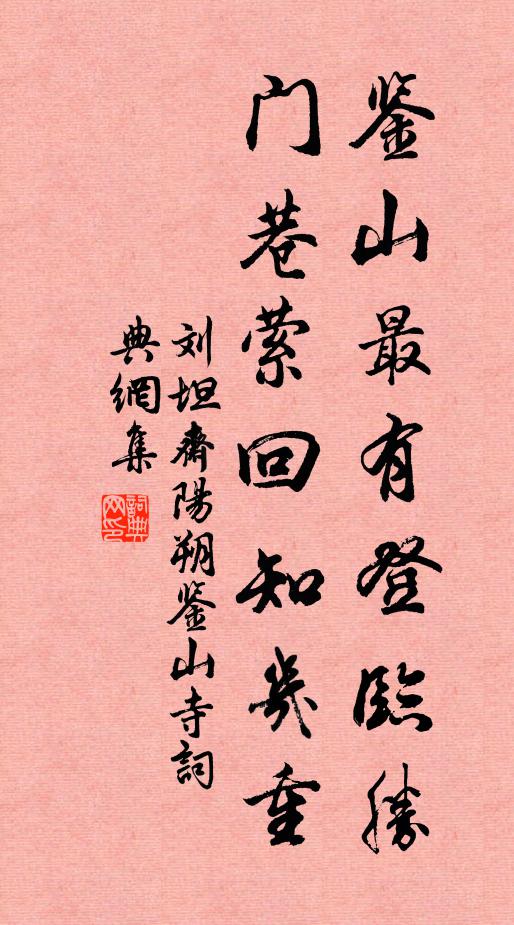 鉴山最有登臨勝
门巷萦回知幾重
刘坦齋陽朔鉴山寺詞
典網集
詞典
网印